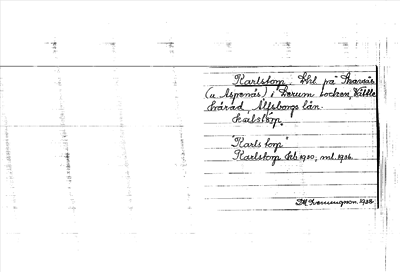 Karlstorp. Lht på Skavnäs
(u Aspenäs) i Lerum socken, Vättle
härad Älfsborgs län.
kalstòrp.
"Karls torp"
Karlstorp Eb 1930, ml. 1936.
1938